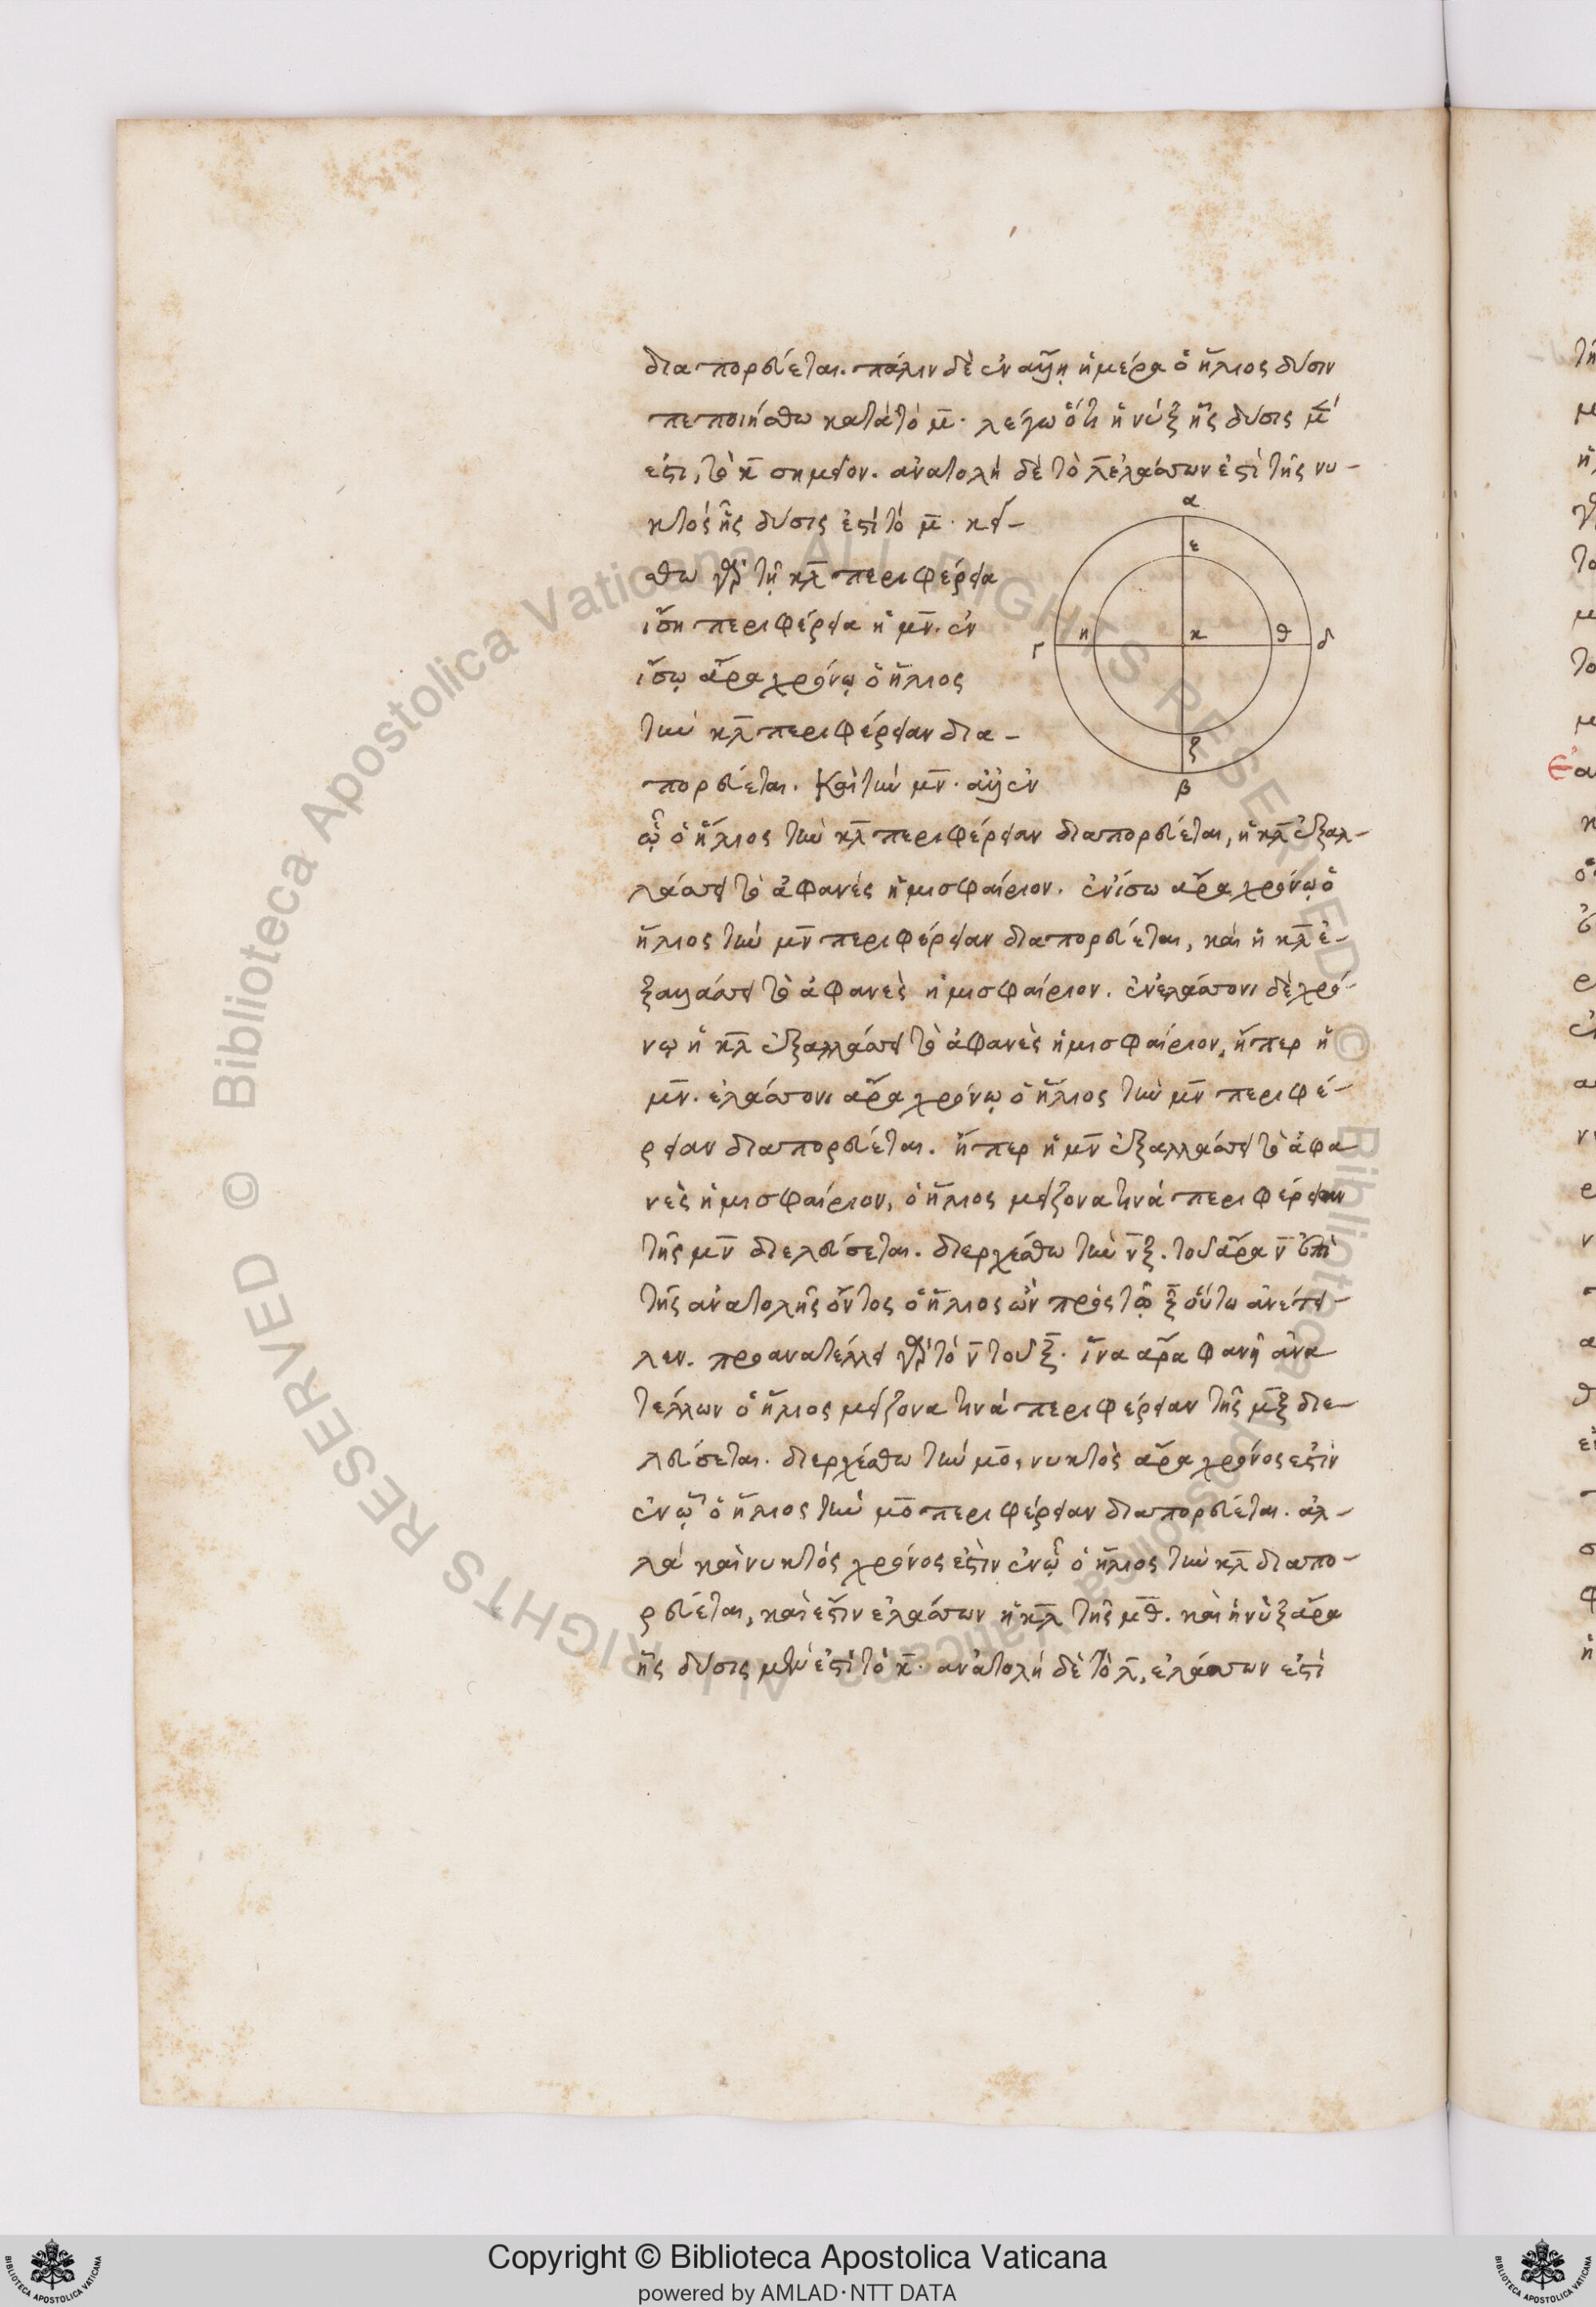 διαπορεύεται. πάλιν δὲ ἐν ἄλλῃ ἡμέρᾳ ὁ ἥλιος δύσιν
πεποιήσθω κατὰ τὸ μ̅. λέγω ὅτι ἡ νὺξ ἧς δύσις μέν
ἐστι, τὸ κ̅ σημεῖον. ἀνατολὴ δὲ τὸ λ̅ ἐλάσσων ἐστὶ τῆς νυ-
κτὸς ἧς δύσις ἐστὶ τὸ μ̅. κεί-
σθω γὰρ τῇ κ̅λ̅ περιφέρεια
ἴση περιφέρεια ἡ μ̅ν̅. ἐν
ἴσῳ ἄρα χρόνῳ ὁ ἥλιος
τὴν κ̅λ̅ περιφέρειαν δια-
πορεύεται. καὶ τὴν μ̅ν̅. ἀλλ' ἐν
ᾧ ὁ ἥλιος τὴν κ̅λ̅ περιφέρειαν διαπορεύεται, ἡ κ̅λ̅ ἐξαλ-
λάσσει τὸ ἀφανὲς ἡμισφαίριον. ἐν ἴσω ἄρα χρόνῳ ὁ
ἥλιος τὴν μ̅ν̅ περιφέρειαν διαπορεύεται, καὶ ἡ κ̅λ̅ ἐ-
ξαλλάσσει τὸ ἀφανὲς ἡμισφαίριον. ἐν ἐλάσσονι δὲ χρό-
νῳ ἡ κ̅λ̅ ἐξαλλάσσει τὸ ἀφανὲς ἡμισφαίριον, ἤπερ ἡ
μ̅ν̅. ἐλάσσονι ἄρα χρόνῳ ὁ ἥλιος τὴν μ̅ν̅ περιφέ-
ρειαν διαπορεύεται. ἤπερ ἡ μ̅ν̅ ἐξαλλάσσει τὸ ἀφα
νὲς ἡμισφαίριον, ὁ ἥλιος μείζονα τινὰ περιφέρειαν
τῆς μ̅ν̅ διελεύσεται. διερχέσθω τὴν ν̅ξ̅. τοῦ ἄρα ν̅ ἐπὶ
τῆς ἀνατολῆς ὄντος ὁ ἥλιος ὢν πρὸς τῷ ξ̅ οὔπω ἀνέτει-
λεν. προανατέλλει γὰρ τὸ ν̅ τοῦ ξ̅. ἵνα ἄρα φανῇ ἀνα
τέλλων ὁ ἥλιος μείζονα τινὰ περιφέρειαν τῆς μ̅ξ̅ διε-
λεύσεται. διερχέσθω τὴν μ̅ο̅, νυκτὸς ἄρα χρόνος ἐστὶν
ἐν ᾧ ὁ ἥλιος τὴν μ̅ο̅ περιφέρειαν διαπορεύεται. ἀλ-
λὰ καὶ νυκτὸς χρόνος ἐστὶν ἐν ᾧ ὁ ἥλιος τὴν κ̅λ̅ διαπο-
ρεύεται, καὶ ἔστιν ἐλάσσων ἡ κ̅λ̅ τῆς μ̅θ̅. καὶ ἡ νὺξ ἄρα
ἧς δύσις μέν ἐστι τὸ κ̅. ἀνατολὴ δὲ τὸ λ̅, ἐλάσσων ἐστὶ
α
ε
γ η κ θ δ
ζ
β
Copyright © Biblioteca Apostolica Vaticana
powered by AMLAD·NTT DATA
© Biblioteca Apostolica Vaticana ALL RIGHTS RESERVED